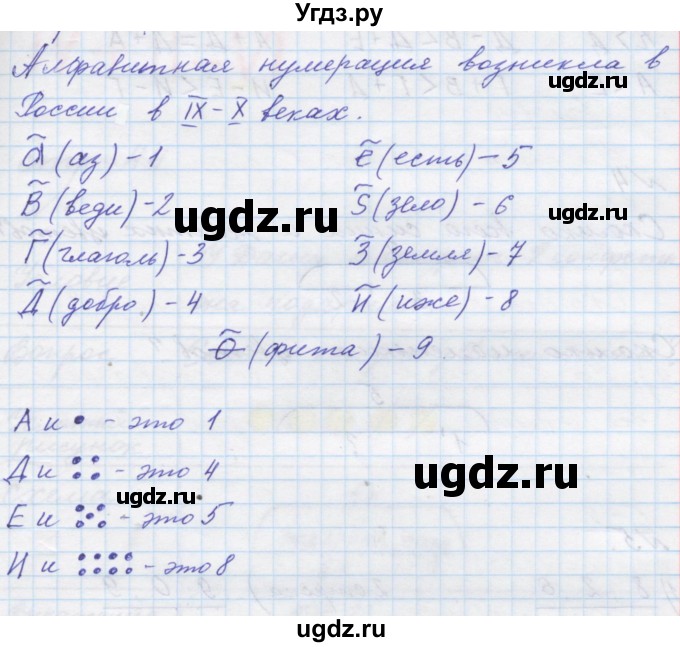 Угдз.ру
Алфавитная нумерация возникла в
России в IX-X веках.
а̃ (аз) - 1 е̃ (есть) - 5
В̃ (веди) - 2 ѕ̃ (зело) - 6
Г̃ (глаголь) - 3 З̃ (земля) - 7
Д̃ (добро) - 4 И̃ (иже) - 8
Ѳ̃ (фита) - 9
ugdz.ru
ugdz.ru
А и • - это 1
Д и :: - это 4
ugdz.ru
ugdz.ru
Е и :•: - это 5
И и :::: - это 8
ugdz.ru
ugdz.ru